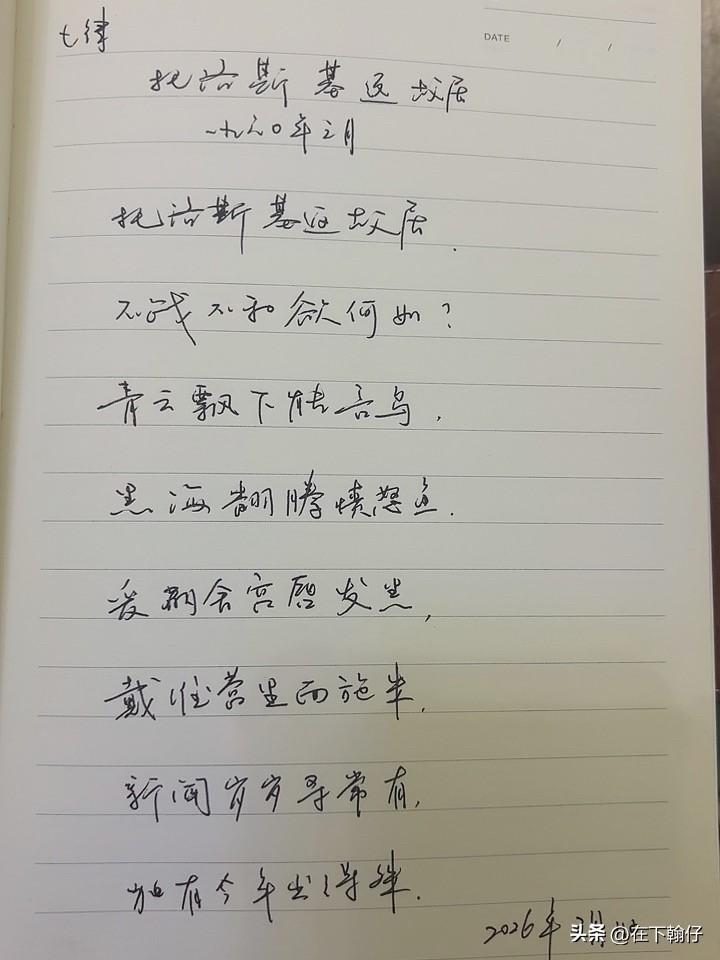 七律
DATE / /
托洛斯基返故居
一九六〇年三月
托洛斯基返故居.
不战不和欲何如?
青云飘下能言鸟,
黑海翻腾愤怒鱼.
爱丽舍宫唇发黑,
戴维营里面施朱.
新闻岁岁寻常有,
独有今年出得殊.
2026年
头条 @在下翰仔